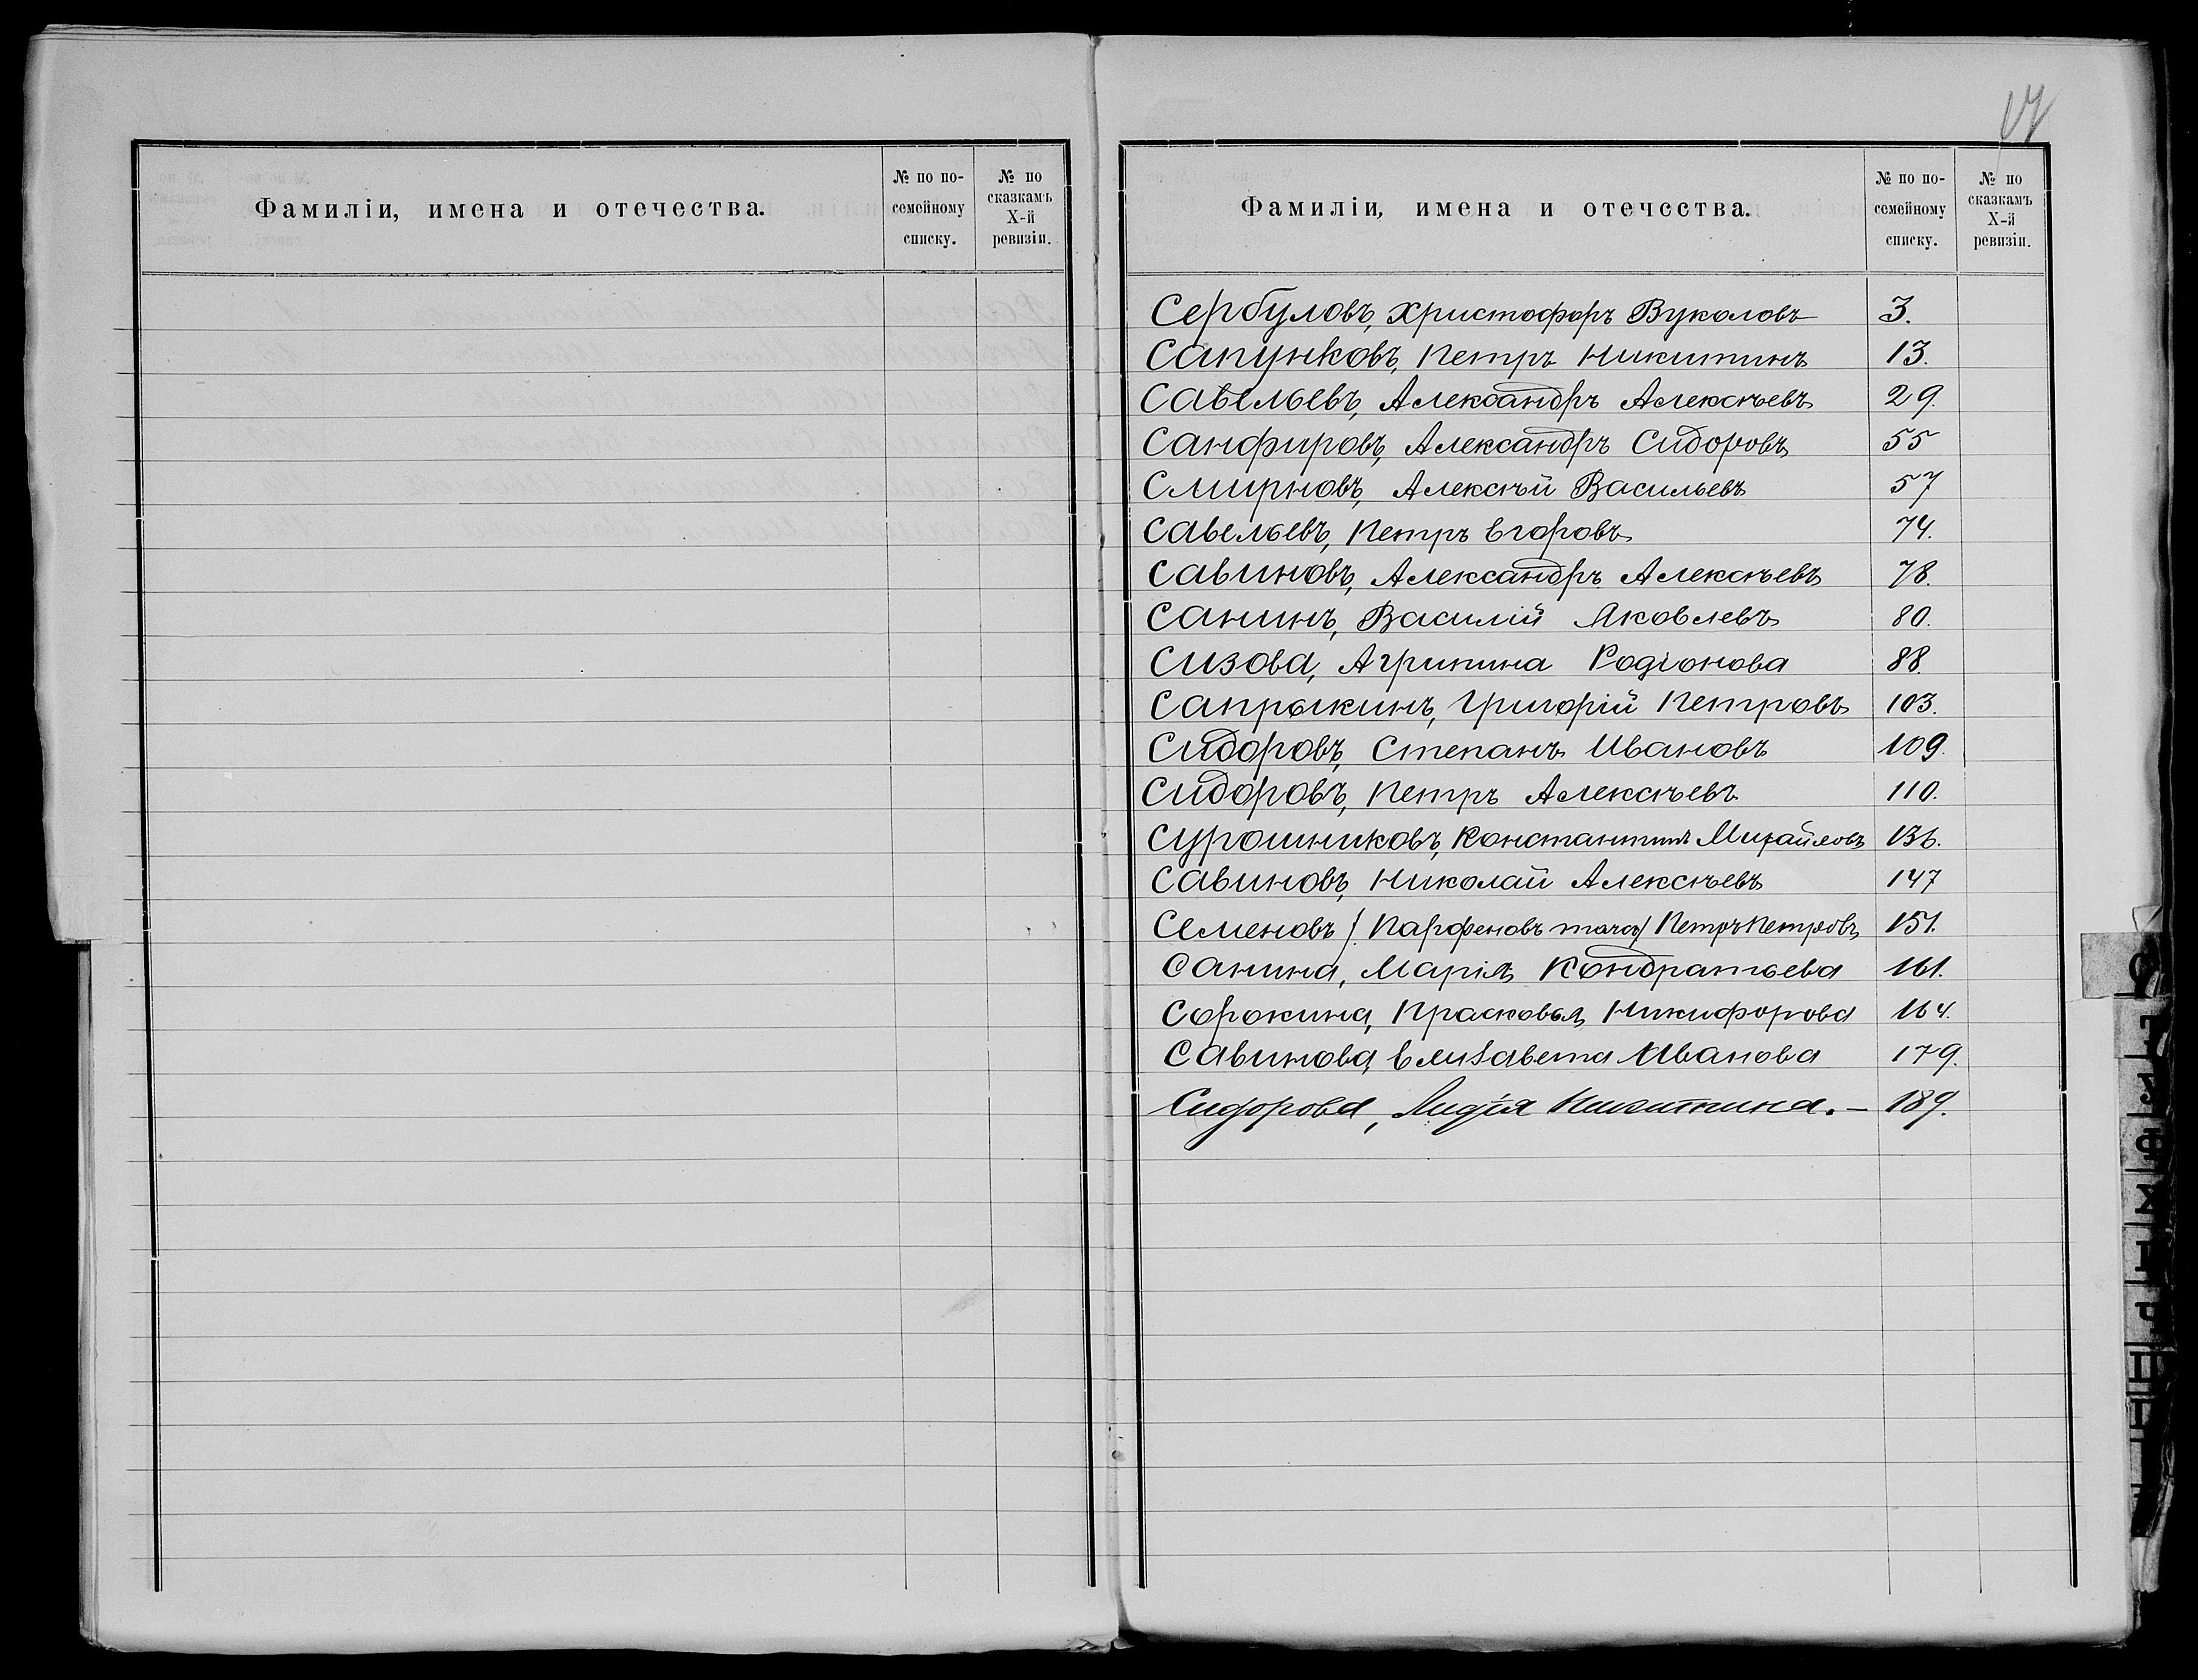 17
Фамиліи, имена и отечества.
№ по по-
семейному
списку.
№ по
сказкамъ
X-й
ревизіи.
Фамиліи, имена и отечества.
№ по по-
семейному
списку.
№ по
сказкамъ
X-й
ревизіи.
Сербуловъ, Христофоръ Вуколовъ 3.
Сапунковъ, Петръ Никитинъ 13.
Савельевъ, Александръ Алексѣевъ 29.
Санфировъ, Александръ Сидоровъ 55
Смирновъ, Алексѣй Васильевъ 57
Савельевъ, Петръ Егоровъ 74.
Савиновъ, Александръ Алексѣевъ 78.
Санинъ, Василій Яковлевъ 80.
Сизова, Агрипина Родіонова 88.
Сапрыкинъ, Григорій Петровъ 103.
Сидоровъ, Степанъ Ивановъ 109.
Сидоровъ, Петръ Алексѣевъ 110.
Сурошниковъ, Константинъ Михайловъ 136.
Савиновъ, Николай Алексѣевъ 147
Семеновъ /Парфеновъ тожъ/ Петръ Петровъ 151.
Санина, Марія Кондратьева 161.
Сорокина, Прасковья Никифорова 164.
Савинова, Елизавета Иванова 179.
Сидорова, Лидія Никитина. — 189.